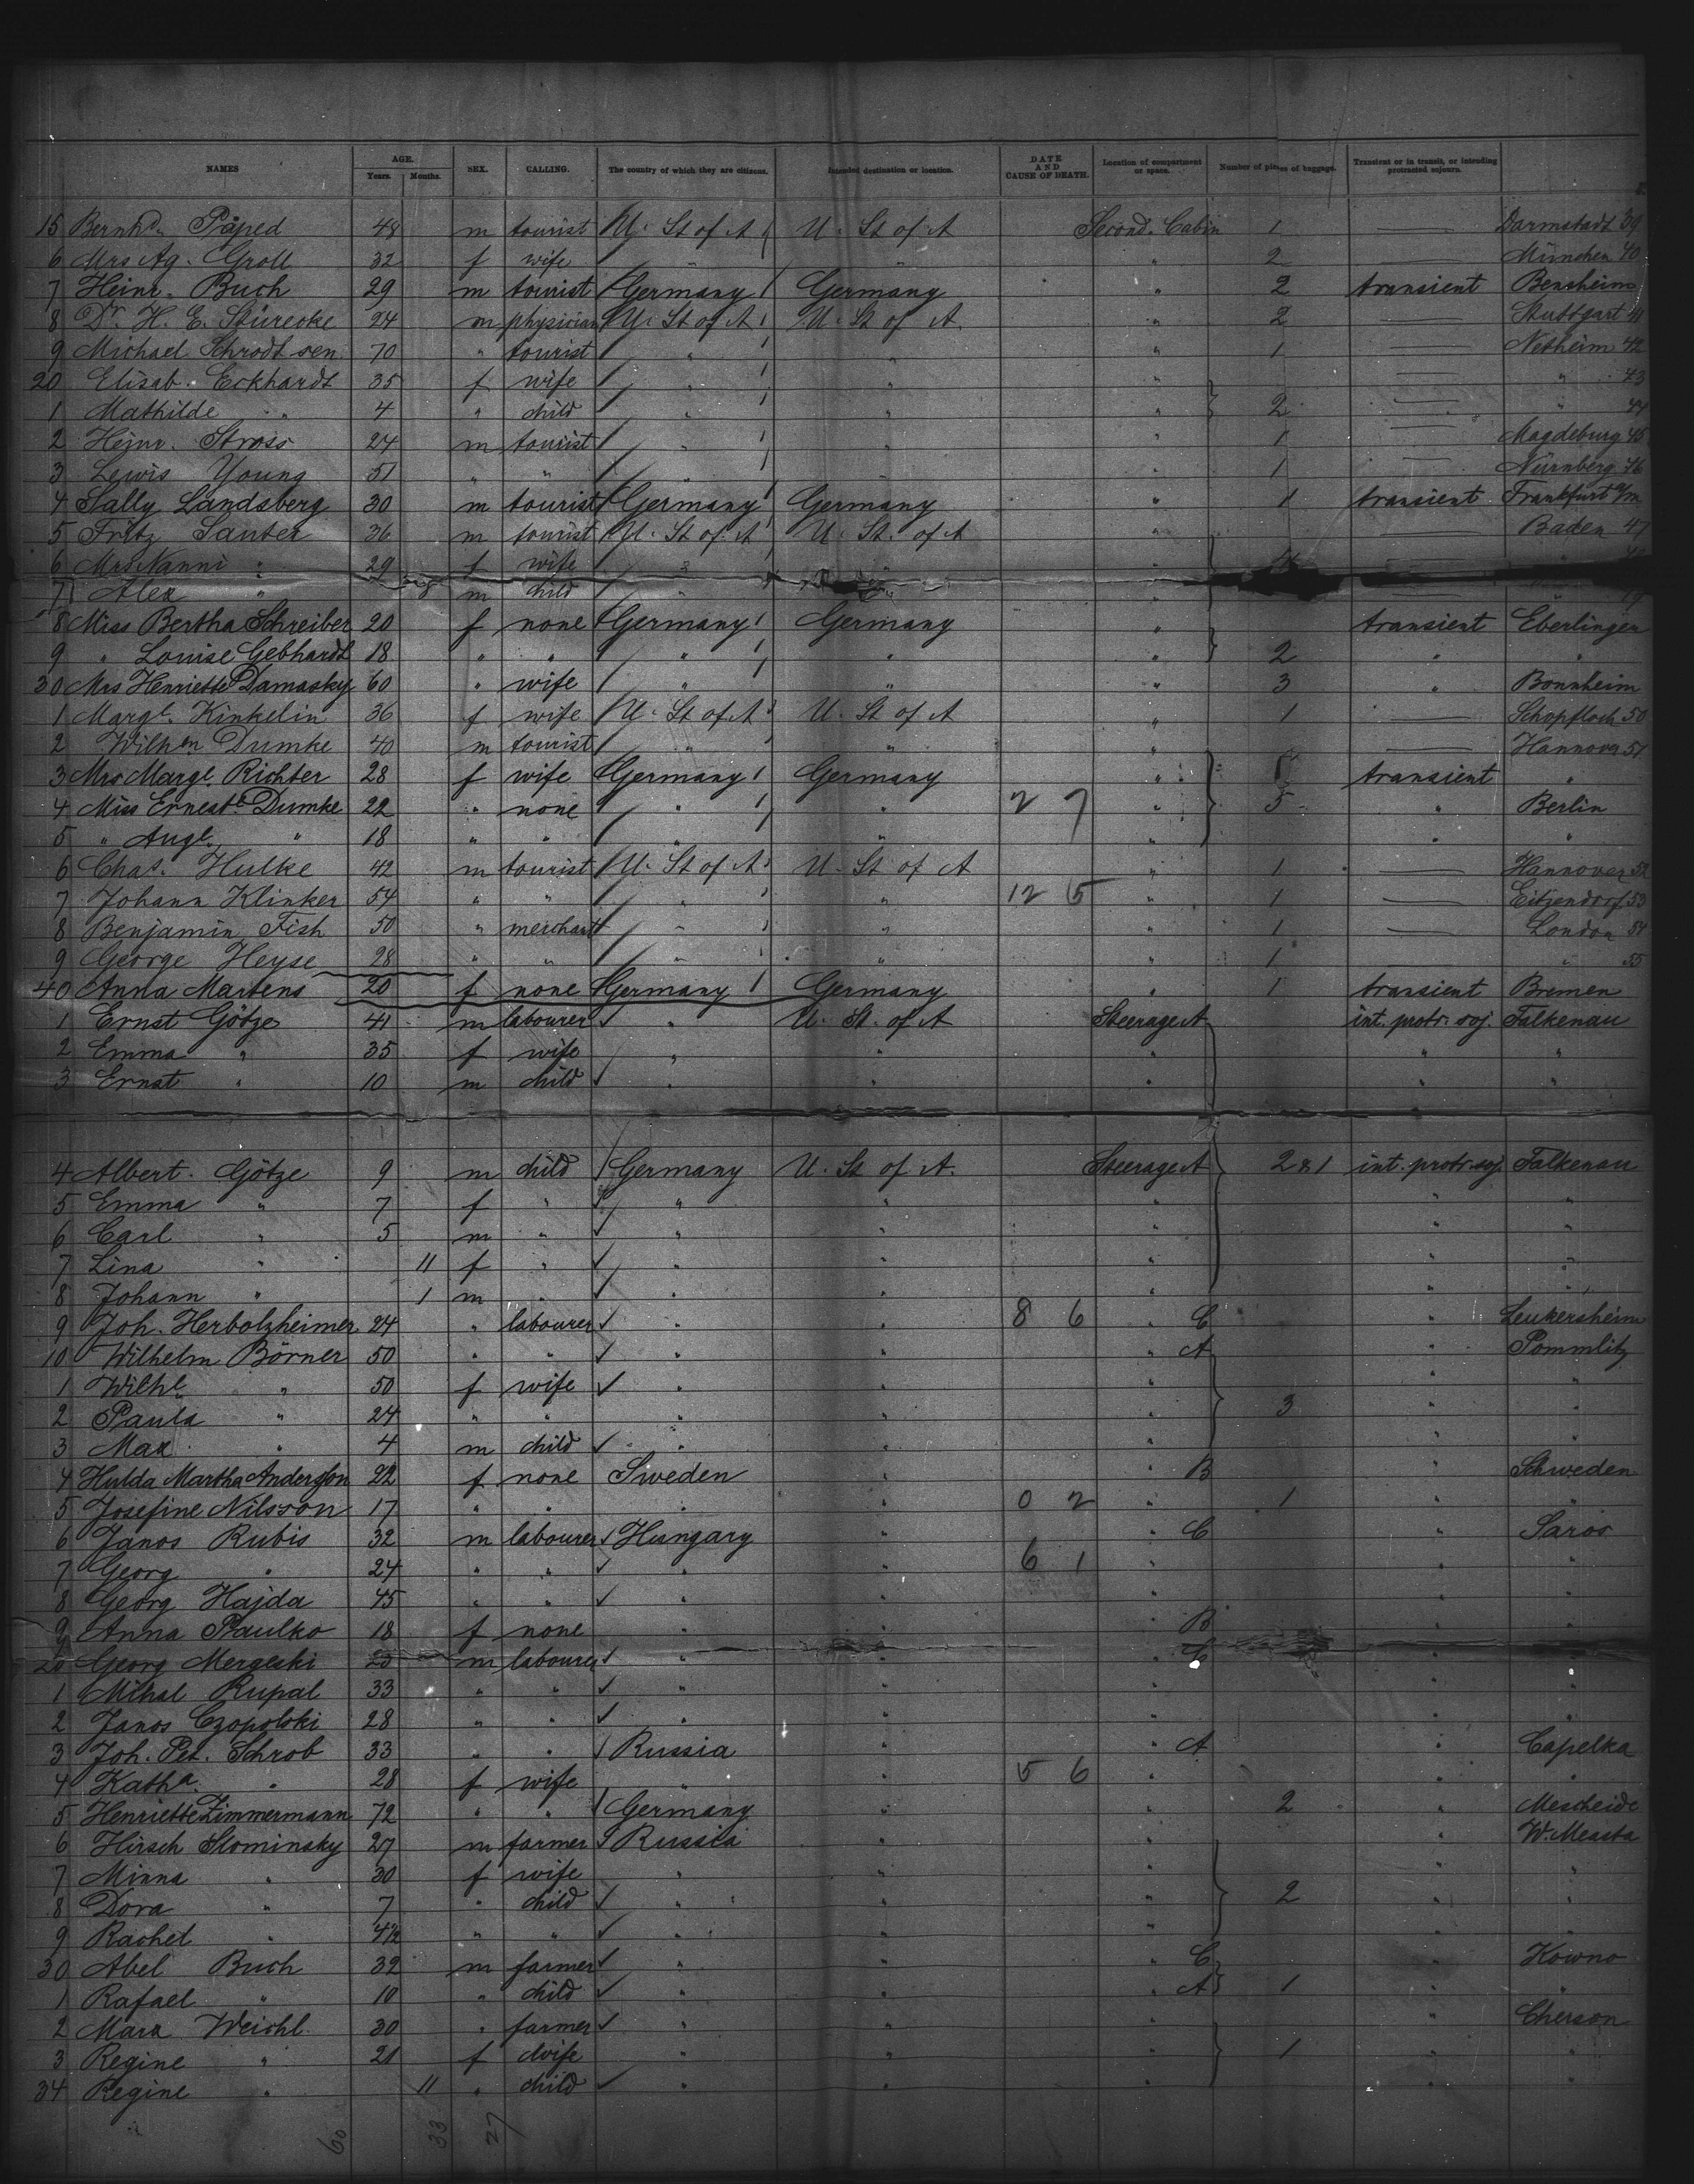 NAMES AGE. Years. Months. SEX. CALLING. The country of which they are citizens. Intended destination or location. DATE AND CAUSE OF DEATH. Location of compartment or space. Number of pieces of baggage. Transient or in transit, or intending protracted sojourn.
15 Bernhd. Påped 48 m tourist U. St of A U. St of A Second Cabin 1 — Darmstadt 39
6 Mrs Ag. Groll 32 f wife " " " 2 — München 40
7 Heinr. Buch 29 m tourist Germany Germany " 2 transient Bensheim
8 Dr. H. E. Stürecke 24 m physician U. St of A U. St of A. " 2 — Stuttgart 41
9 Michael Schrodt sen. 70 " tourist " " " 1 — Netheim 42
20 Elisab. Eckhardt 35 f wife " " " — " 43
1 Mathilde " 4 " child " " " 2 — " 44
2 Heinr. Stross 24 m tourist " " " 1 — Magdeburg 45
3 Lewis Young 51 " " " " " 1 — Nürnberg 46
4 Sally Landsberg 30 m tourist Germany Germany " 1 transient Frankfurt a/m
5 Fritz Santer 36 m tourist U. St of A U. St. of A " Baden 47
6 Mrs Nanni " 29 f wife " " "
7 Alex " 8 m child " " "
8 Miss Bertha Schreiber 20 f none Germany Germany " transient Eberlingen
9 " Louise Gebhardt 18 " " " " " 2 " "
30 Mrs Henriette Damasky 60 " wife " " " 3 " Bonnheim
1 Margt. Kinkelin 36 f wife U. St of A U. St of A " 1 — Schopfloch 50
2 Wilhm Dumke 40 m tourist " " " — Hannover 51
3 Mrs Margt. Richter 28 f wife Germany Germany " transient "
4 Miss Ernestе Dumke 22 " none " " 2 7 " 5 " Berlin
5 " Augt. " 18 " " " " " " "
6 Chas. Hulke 42 m tourist U. St of A U. St of A " 1 — Hannover 52
7 Johann Klinker 54 " " " " 12 5 " 1 — Eitzendorf 53
8 Benjamin Fish 50 " merchant " " " 1 — London 54
9 George Heyse 28 " " " " " 1 " 55
40 Anna Martens 20 f none Germany Germany " 1 transient Bremen
1 Ernst Götze 41 m labourer " U. St. of A Steerage A int. protr. soj. Falkenau
2 Emma " 35 f wife " " " " "
3 Ernst " 10 m child " " " " "
4 Albert Götze 9 m child Germany U. St of A. Steerage A 2 & 1 int. protr. soj. Falkenau
5 Emma " 7 f " " " " " "
6 Carl " 5 m " " " " " "
7 Lina " 11 f " " " " " "
8 Johann " 1 m " " " " " "
9 Joh. Herbolzheimer 24 " labourer " " 8 6 " C " Leukersheim
10 Wilhelm Börner 50 " " " " " A " Pommlitz
1 Wilhe " 50 f wife " " " " "
2 Paula " 24 " " " " " 3 " "
3 Max " 4 m child " " " " "
4 Hulda Martha Andersson 22 f none Sweden " " B " Schweden
5 Josefine Nilsson 17 " " " " 0 2 " 1 " "
6 Janos Rubis 32 m labourer Hungary " " C " Saros
7 Georg " 24 " " " " 6 1 " " "
8 Georg Hajda 45 " " " " " " "
9 Anna Paulko 18 f none " " " B " "
20 Georg Mergeski 25 m labourer " " " C " "
1 Mihal Rupal 33 " " " " " " "
2 Janos Czopolski 28 " " " " " " "
3 Joh. Pet. Schrob 33 " " Russia " " A " Capelka
4 Katha. " 28 f wife " " 5 6 " " "
5 Henriette Zimmermann 72 " " Germany " " 2 " Mescheide
6 Hirsch Slominsky 27 m farmer Russia " " " W. Measta
7 Minna " 30 f wife " " " " "
8 Dora " 7 " child " " " 2 " "
9 Rachel " 4½ " " " " " " "
30 Abel Buch 32 m farmer " " " C " Kowno
1 Rafael " 10 " child " " " A 1 " "
2 Marx Weichl 30 " farmer " " " " Cherson
3 Regine " 21 f wife " " " 1 " "
34 Regine " 11 " child " " " " "
60 33 27